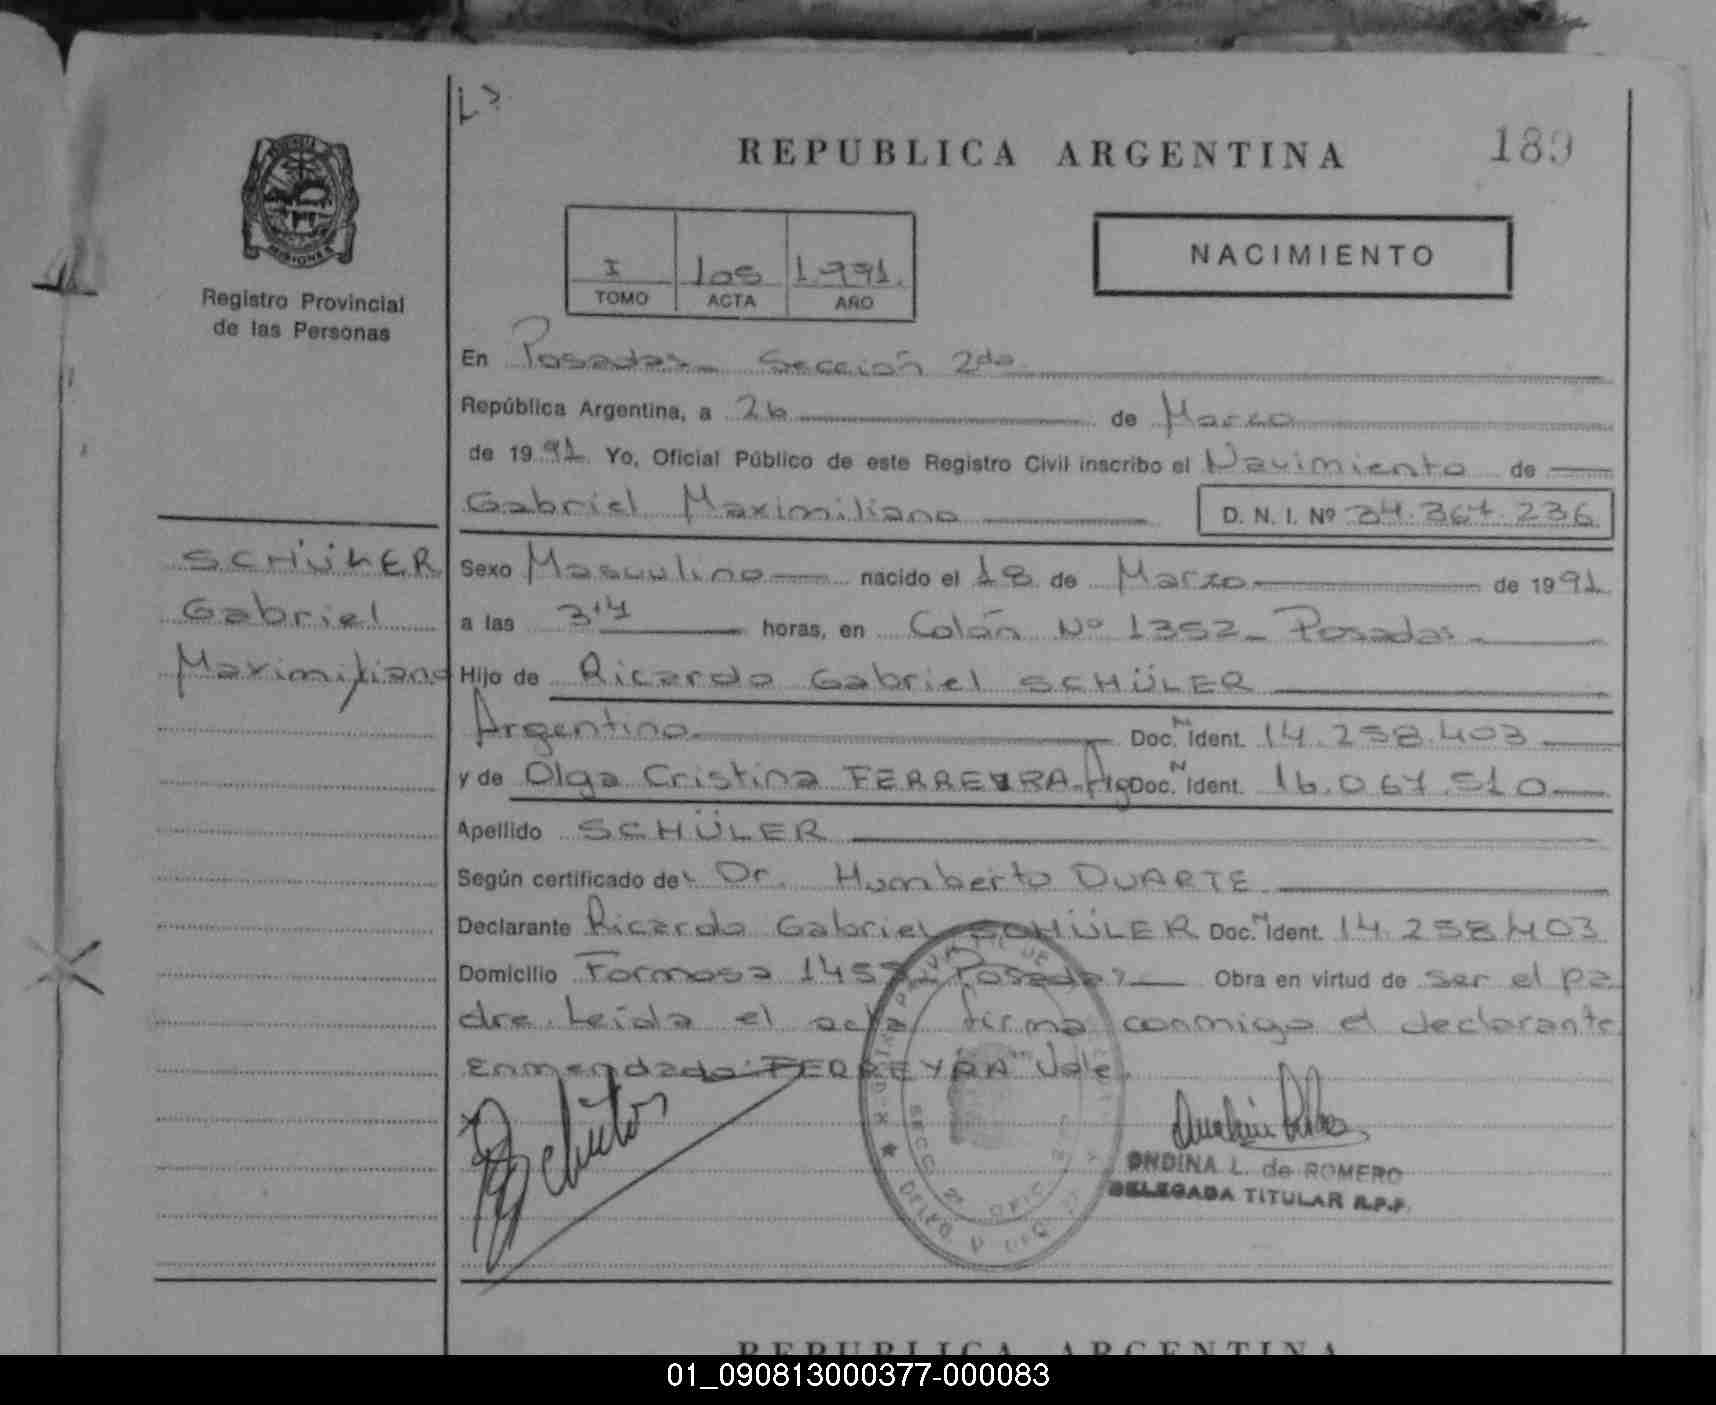 REPUBLICA ARGENTINA
189
MISIONES
Registro Provincial
de las Personas
I 105 1.991.
TOMO ACTA AÑO
NACIMIENTO
En Posadas Sección 2da
República Argentina, a 26 de Marzo
de 1991 Yo, Oficial Público de este Registro Civil inscribo el Nacimiento de
Gabriel Maximiliano D. N. I. Nº 34.367.236
SCHÜLER
Gabriel
Maximiliano
Sexo Masculino nacido el 18 de Marzo de 1991
a las horas, en Colón Nº 1352 - Posadas
Hijo de Ricardo Gabriel SCHÜLER
Argentino Doc. N Ident. 14.258.403
y de Olga Cristina FERREYRA - Arg Doc. N Ident. 16.067.510
Apellido SCHÜLER
Según certificado de: Dr. Humberto DUARTE
Declarante Ricardo Gabriel SCHÜLER Doc. N Ident. 14.258.403
Domicilio Formosa Posadas Obra en virtud de ser el pa
dre. Leída el acta firma conmigo el declarante
Enmendado: "FERREYRA" Vale.
SECC 2ª OFIC
ONDINA L. de ROMERO
DELEGADA TITULAR R.P.P.
REPUBLICA ARGENTINA
01_090813000377-000083